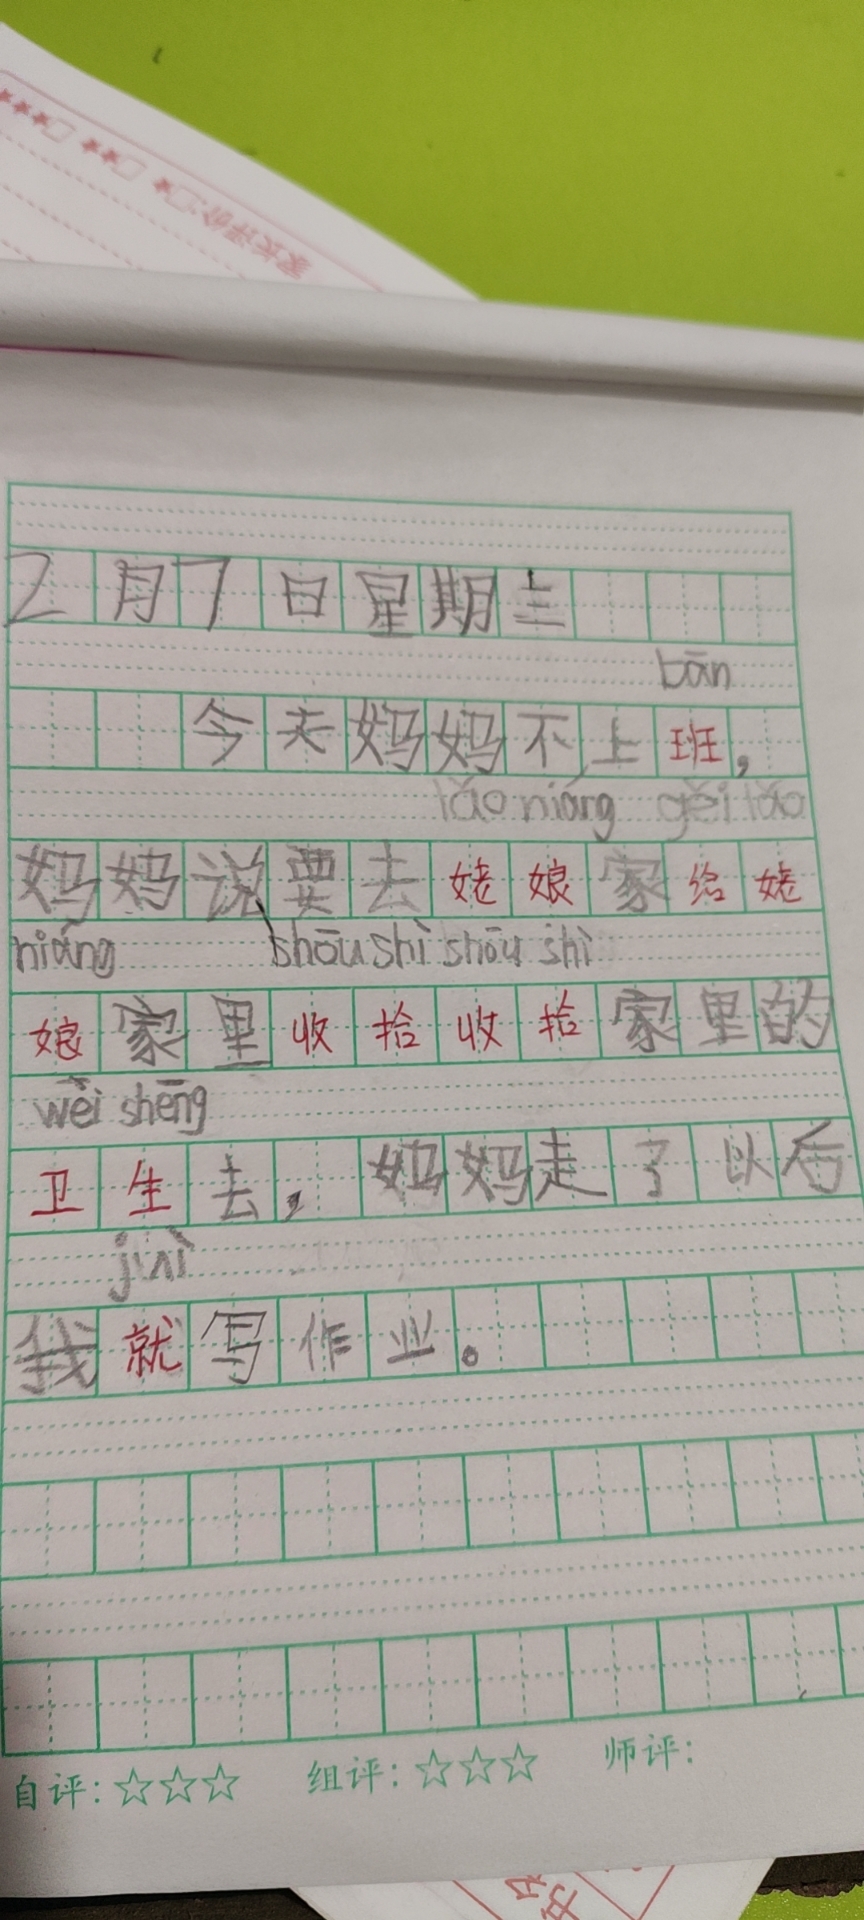 家长评价:□★ □★★ □★★★
2月7日星期三
bān
今天妈妈不上班，
lǎo niáng gěi lǎo
妈妈说要去姥娘家给姥
niáng shōu shi shōu shi
娘家里收拾收拾家里的
wèi shēng
卫生去，妈妈走了以后
jiù
我就写作业。
自评：☆☆☆ 组评：☆☆☆ 师评：